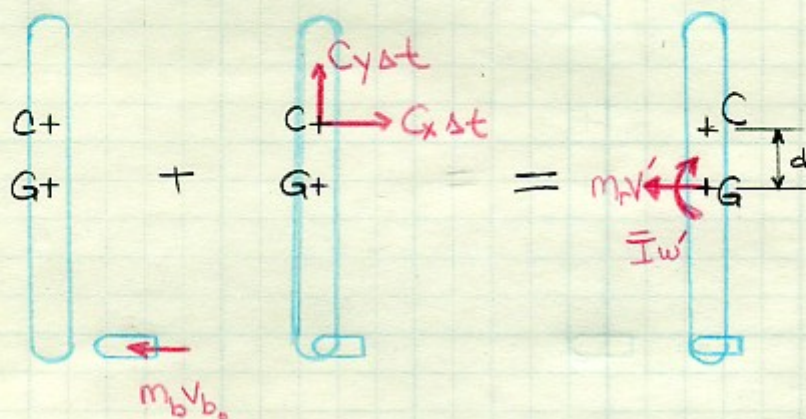 C+
G+
m_b v_b₀
+
C_yΔt
C+
C_xΔt
G+
=
+ C
d
m_r v̄′
+G
Īω′